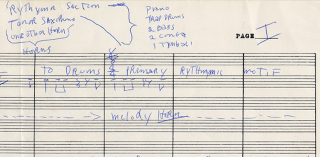 Rythmn Section
Tenor Saxophone
one other Horn
Horns
Piano
Trap Drums
2 Basses
2 Conga
1 Tymbali
PAGE I
To DRUMS PRIMARY RYTHMNIC MOTIF
melody Horn